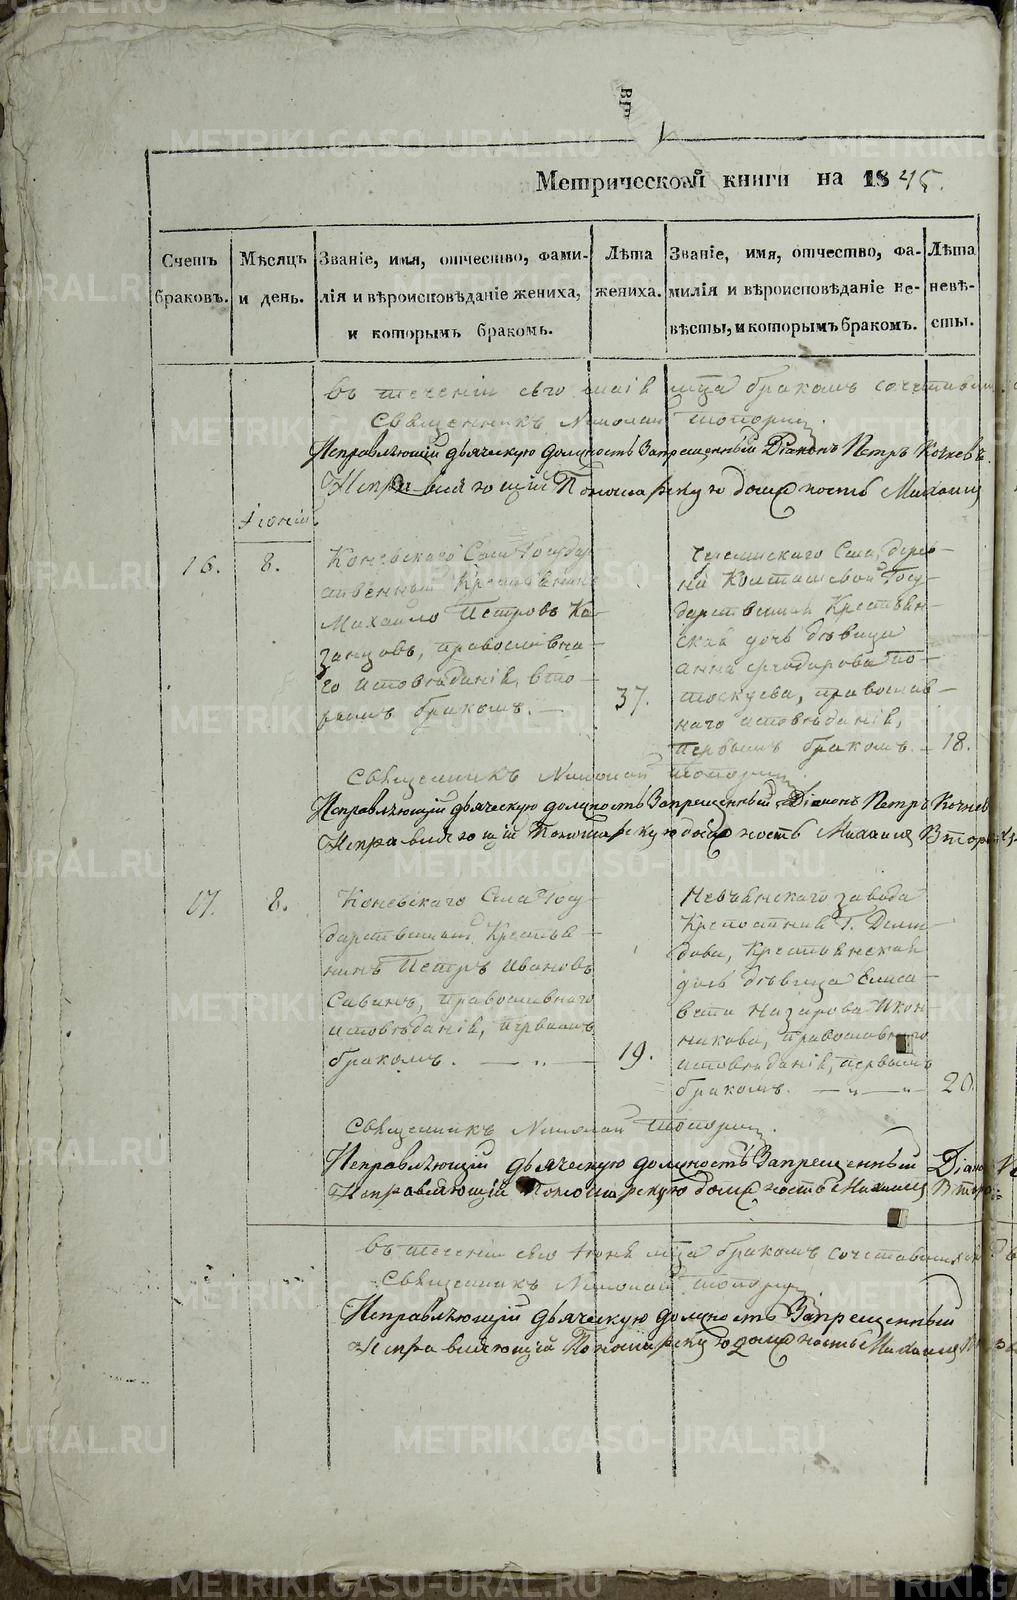 Метрической книги на 1845.
Счетъ браковъ.
Мѣсяцъ и день.
Званіе, имя, отчество, фами-
лія и вѣроисповѣданіе жениха,
и которымъ бракомъ.
Лѣта
жениха.
Званіе, имя, отчество, фа-
милія и вѣроисповѣданіе не-
вѣсты, и которымъ бракомъ.
Лѣта
невѣ-
сты.
въ теченіи сего маія мца бракомъ сочетавши
Священникъ Николай Топорк
Исправляющій дьяческую должность Запрещенный Діаконъ Петръ Кочневъ.
Исправляющій Пономарскую должность Михаилъ
Іюній
16.
8.
Коневскаго Села Госуда-
рственный Крестьянинъ
Михайло Петровъ Ка-
занцовъ, православна-
го исповѣданій, вто-
рымъ бракомъ. —
37.
Села, дерев-
ни Колташевой Госу-
дарственнаи Крестьян-
ская дочь дѣвица
Анна Феодорова По-
тоскуева, православ-
наго исповѣданій,
первымъ бракомъ. —
18.
Священникъ Николай
Исправляющій дьяческую должность Запрещенный Діаконъ Петръ Кочнев
Исправляющій Пономарскую должность Михаилъ
17.
8.
Коневскаго Села Госу-
дарственный Крестья-
нинъ Петръ Ивановъ
Савинъ, православнаго
исповѣданій, первымъ
бракомъ. — „ —
19.
Невьянскаго завода
Крепостная Г. Деми-
дова, Крестьянская
дочь дѣвица Елиса-
вета Назарова Икон-
никова, православнаго
исповѣданій, первымъ
бракомъ. — „ — „
20
Священникъ Николай
Исправляющій дьяческую должность Запрещенный Діако
Исправляющій Пономарскую должность Михаилъ
въ теченіи сего Іюня мца бракомъ сочетавшихся
Священникъ Николай
Исправляющій дьяческую должность Запрещенный
Исправляющій Пономарскую должность Михаилъ
METRIKI.GASO-URAL.RU